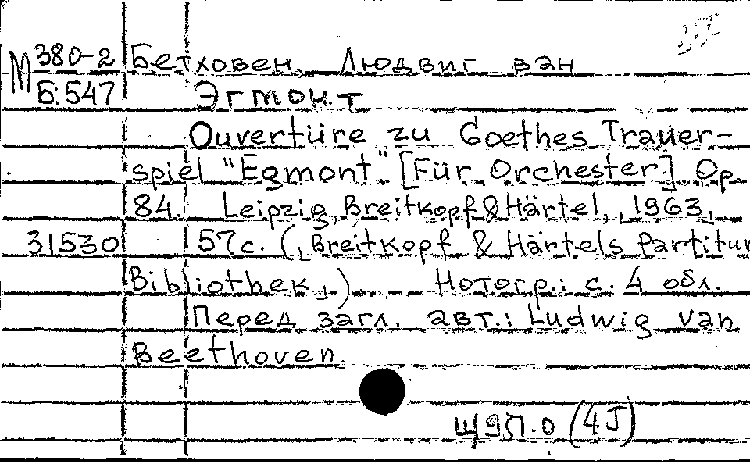 М 380-2 Бетховен, Людвиг ван
Б.547 Эгмонт
Ouvertüre zu Goethes Trauer-
spiel "Egmont" [Für Orchester] Op.
84. Leipzig, Breitkopf & Härtel, 1963,
31530 57 с. (Breitkopf & Härtels Partitur
Bibliothek,) Нотогр.: с. 4 обл.
Перед загл. авт.: Ludwig van
Beethoven.